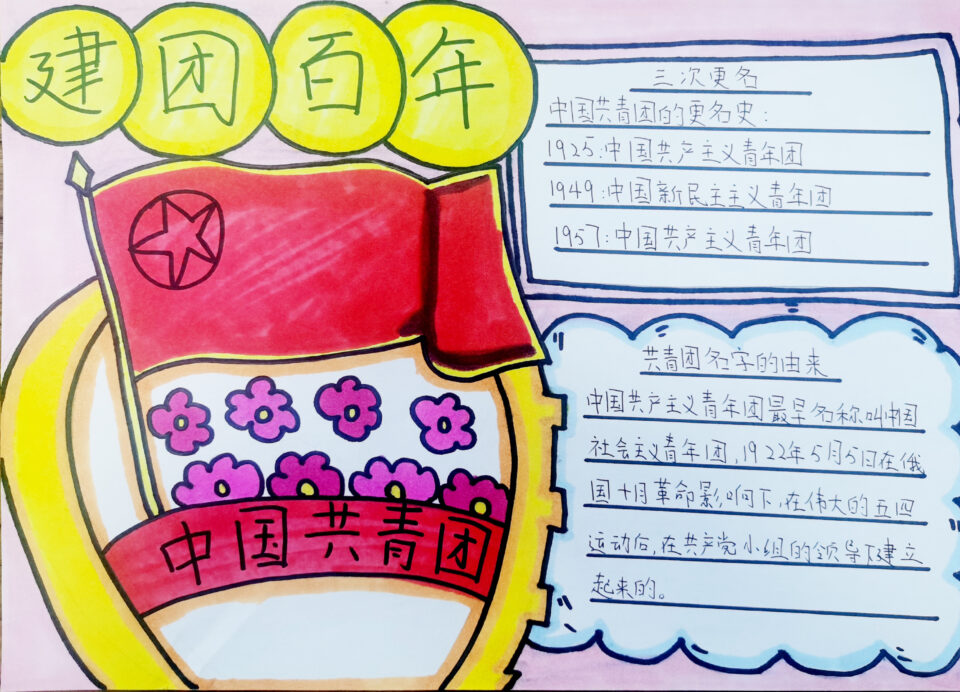 建团百年
三次更名
中国共青团的更名史:
1925:中国共产主义青年团
1949:中国新民主主义青年团
1957:中国共产主义青年团
共青团名字的由来
中国共产主义青年团最早名称叫中国
社会主义青年团,1922年5月5日在俄
国十月革命影响下,在伟大的五四
运动后,在共产党小组的领导下建立
起来的。
中国共青团